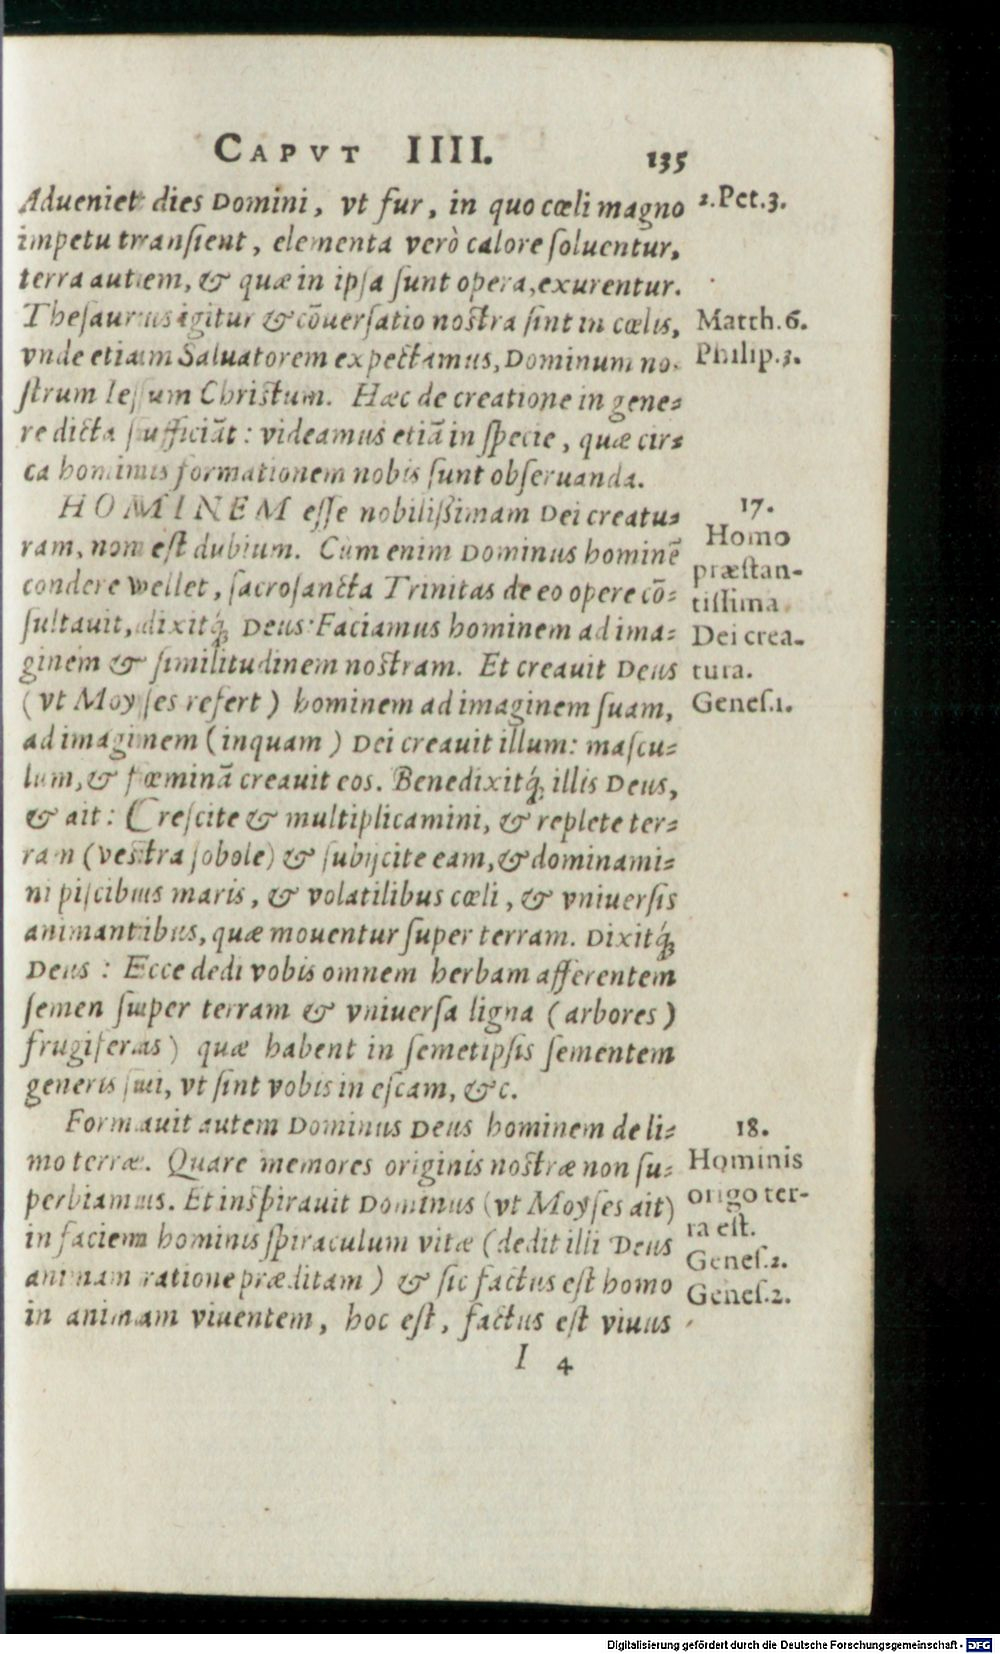 CAPVT IIII. 135
Adueniet dies Domini, vt fur, in quo cœli magno
impetu transient, elementa verò calore soluentur,
terra autem, & quæ in ipsa sunt opera, exurentur.
Thesaurus igitur & cōuersatio nostra sint in cœlis,
vnde etiam Saluatorem expectamus, Dominum no-
strum Iesum Christum. Hæc de creatione in gene-
re dicta sufficiāt: videamus etiā in specie, quæ cir-
ca hominis formationem nobis sunt obseruanda.
HOMINEM esse nobilißimam Dei creatu-
ram, non est dubium. Cùm enim Dominus hominē
condere vellet, sacrosancta Trinitas de eo opere cō-
sultauit, dixitq́; Deus: Faciamus hominem ad ima-
ginem & similitudinem nostram. Et creauit Deus
(vt Moyses refert) hominem ad imaginem suam,
ad imaginem (inquam) Dei creauit illum: mascu-
lum, & fœminā creauit eos. Benedixitq́; illis Deus,
& ait: Crescite & multiplicamini, & replete ter-
ram (vestra sobole) & subijcite eam, & dominami-
ni piscibus maris, & volatilibus cœli, & vniuersis
animantibus, quæ mouentur super terram. Dixitq́;
Deus: Ecce dedi vobis omnem herbam afferentem
semen super terram & vniuersa ligna (arbores)
frugiferas) quæ habent in semetipsis sementem
generis sui, vt sint vobis in escam, &c.
Formauit autem Dominus Deus hominem de li-
mo terræ. Quare memores originis nostræ non su-
perbiamus. Et inspirauit Dominus (vt Moyses ait)
in faciem hominis spiraculum vitæ (dedit illi Deus
animam ratione præditam) & sic factus est homo
in animam viuentem, hoc est, factus est viuus
I 4
2.Pet.3.
Matth.6.
Philip.3.
17.
Homo
præstan-
tissima
Dei crea-
tura.
Genes.1.
18.
Hominis
origo ter-
ra est.
Genes.2.
Genes.2.
Digitalisierung gefördert durch die Deutsche Forschungsgemeinschaft - DFG